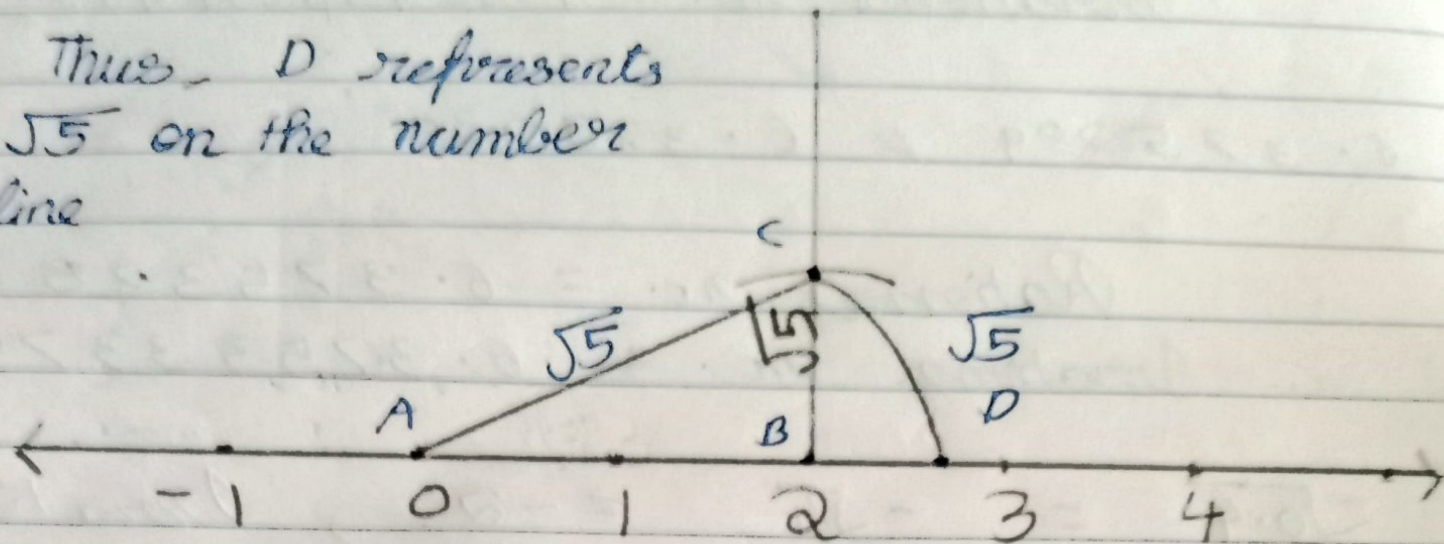 Thus, D represents
√5 on the number
line
C
√5
√5
√5
A
B
D
-1 0 1 2 3 4